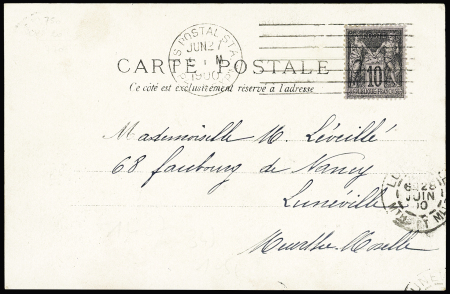 U.S. POSTAL STA.
JUN 2
1 N
1900
CARTE POSTALE
10
Ce côté est exclusivement réservé à l'adresse
Mademoiselle M. Léveillé
68 faubourg de Nancy
Lunéville
Meurthe Moselle
JUIN
00